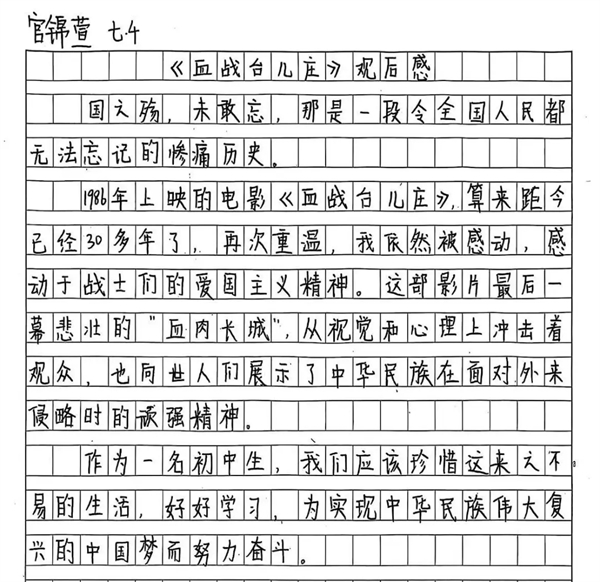 官锦萱 七.4
《血战台儿庄》观后感
国之殇，未敢忘，那是一段令全国人民都
无法忘记的惨痛历史。
1986年上映的电影《血战台儿庄》，算来距今
已经30多年了，再次重温，我依然被感动，感
动于战士们的爱国主义精神。这部影片最后一
幕悲壮的"血肉长城"，从视觉和心理上冲击着
观众，也向世人们展示了中华民族在面对外来
侵略时的顽强精神。
作为一名初中生，我们应该珍惜这来之不
易的生活，好好学习，为实现中华民族伟大复
兴的中国梦而努力奋斗。